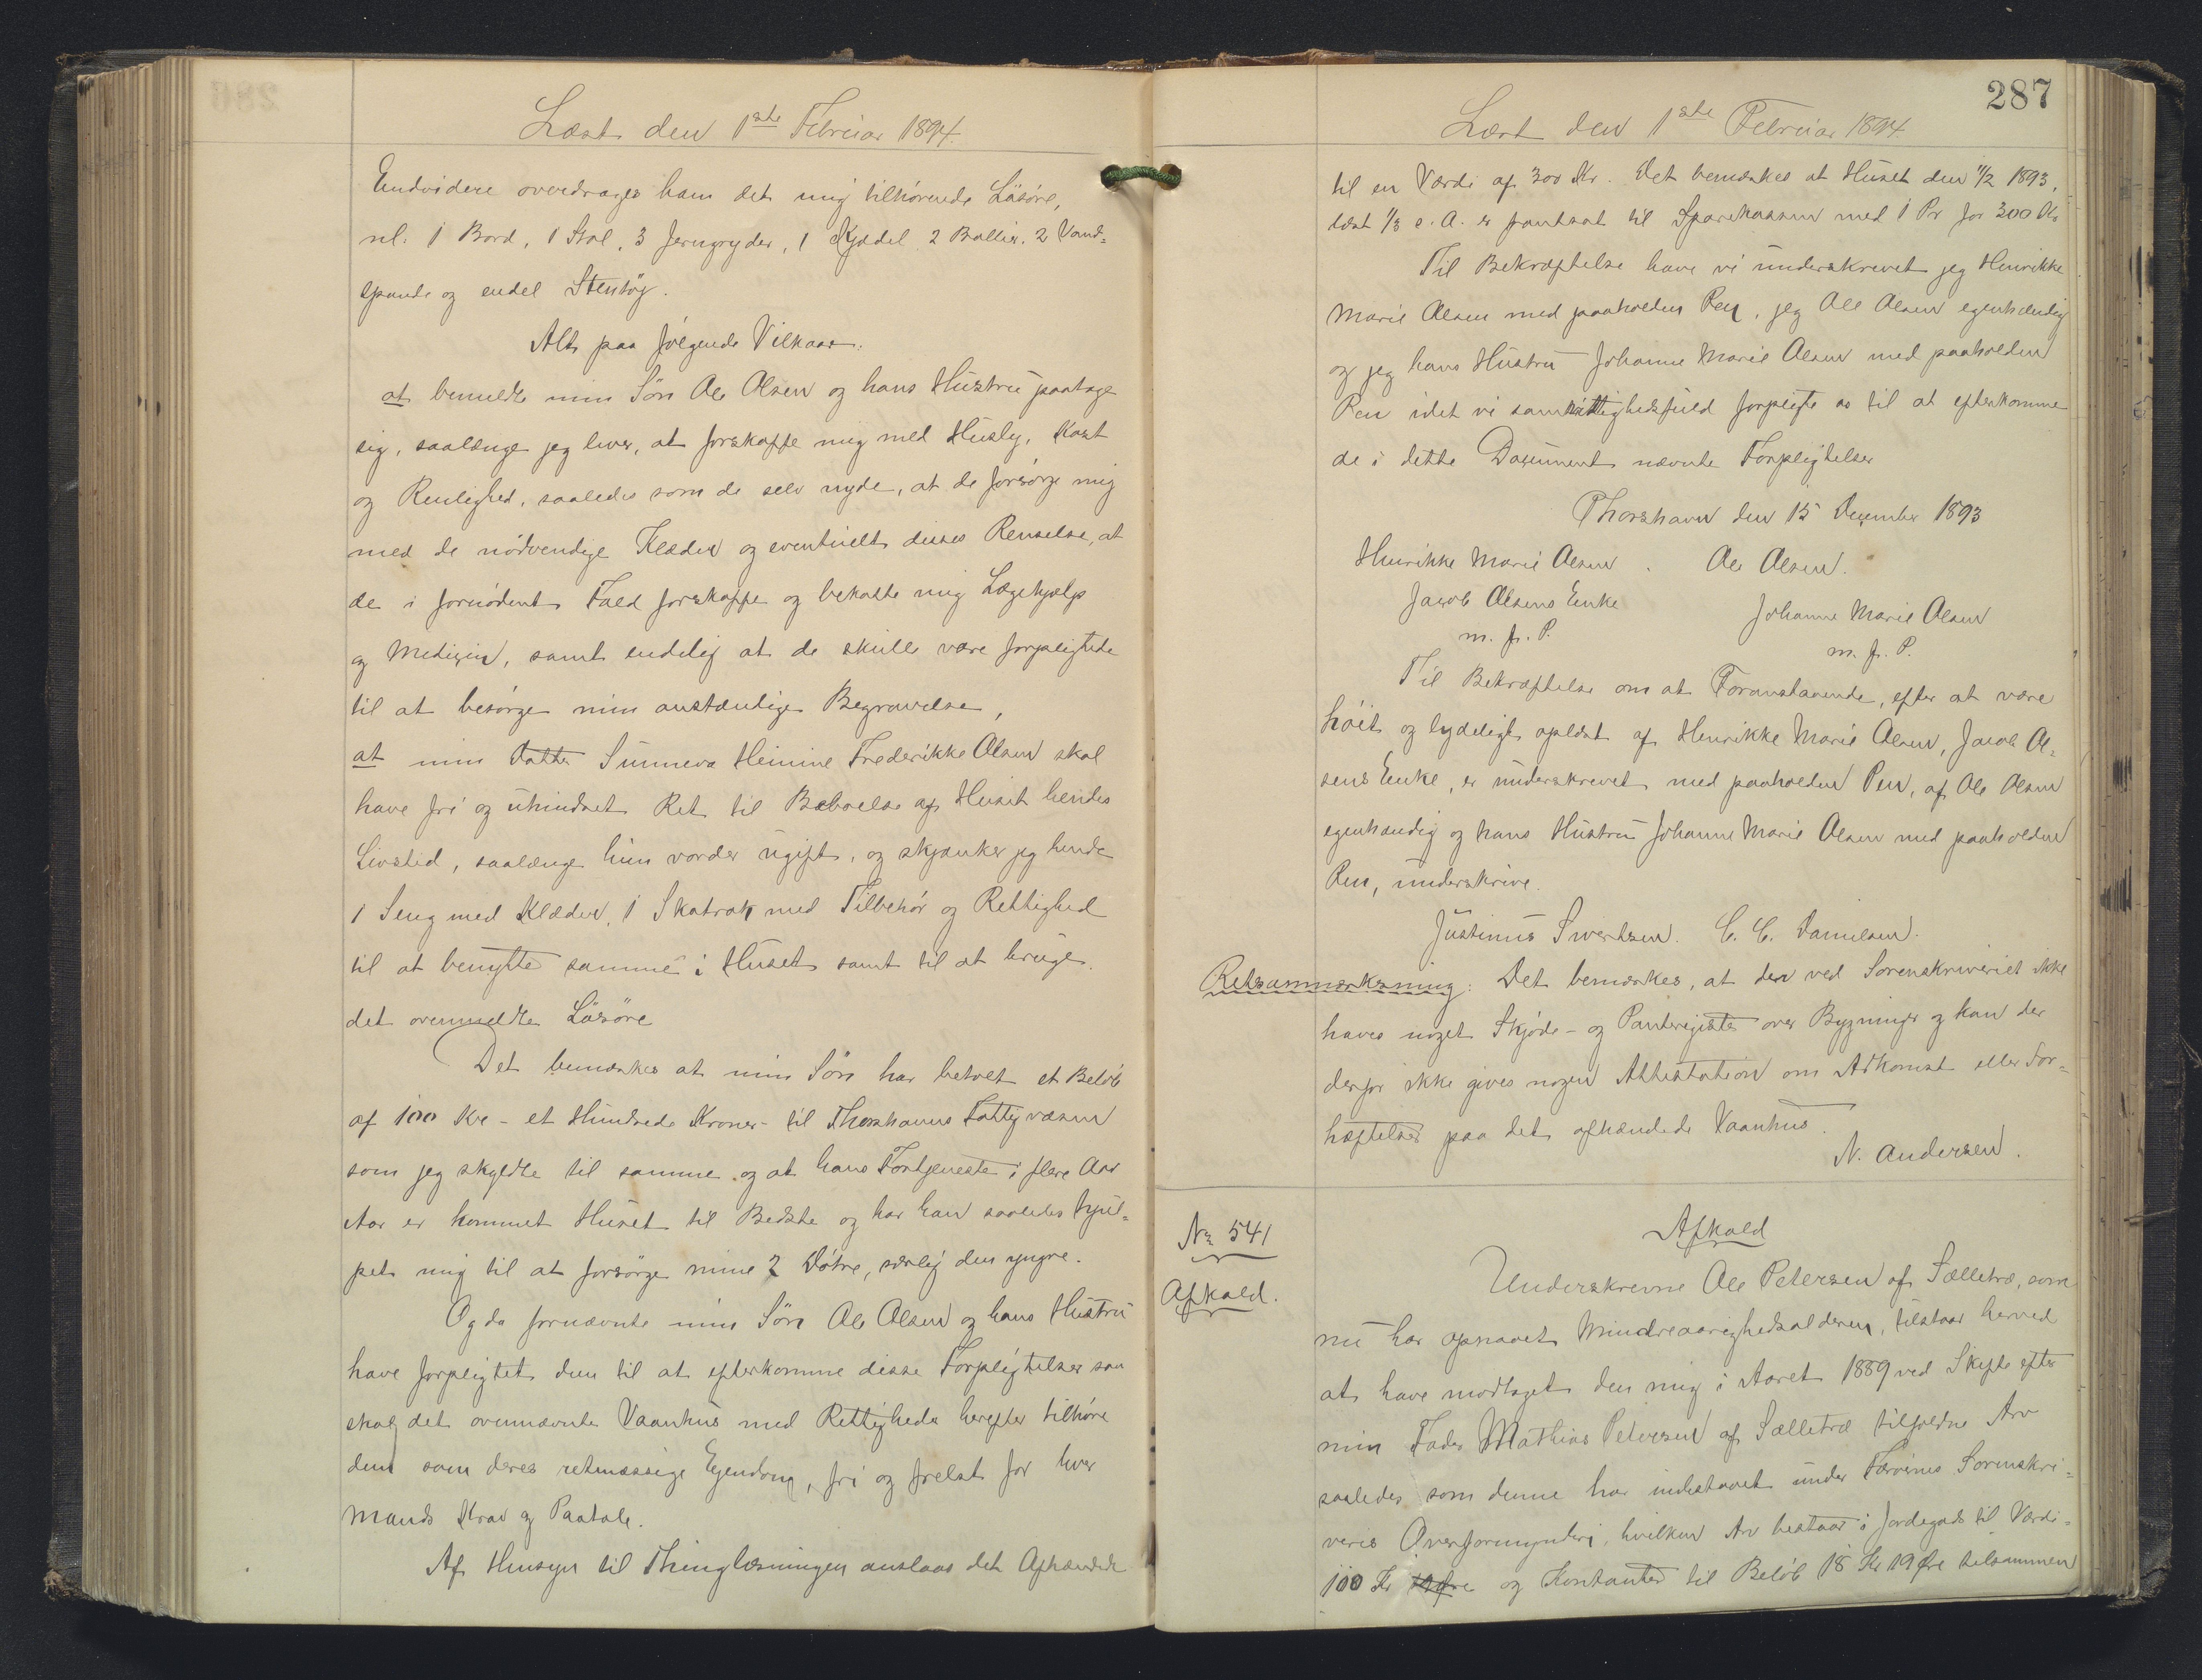 Læst den 1ste Februar 1894.
Endvidere overdrages ham det mig tilhørende Løsøre,
nl. 1 Bord, 1 Stol, 3 Jerngryder, 1 Kjedel, 2 Ballier, 2 Vand-
spande og endel Stentøj.
Alt paa følgende Vilkaar:
at bemeldte min Søn Ole Olsen og hans Hustru paatage
sig, saalænge jeg lever, at forskaffe mig med Husly, Kost
og Renlighed, saaledes som de selv nyde, at de forsørge mig
med de nødvendige Klæder og eventuelt disses Renselse, at
de i fornødent Fald forskaffe og bekoste mig Lægehjælp
og Medizin, samt endelig at de skulle være forpligtede
til at besørge min anstændige Begravelse,
at min Datter Sunneva Heinine Frederikke Olsen skal
have fri og uhindret Ret til Beboelse af Huset hendes
Livstid, saalænge hun vorder ugift, og skjænker jeg hende
1 Seng med Klæder, 1 Skatrok med Tilbehør og Rettighed
til at benytte samme i Huset samt til at bruge
det ovenmeldte Løsøre
Det bemærkes at min Søn har betalt et Beløb
af 100 Kr - et Hundrede Kroner - til Thorshavns Fattigvæsen
som jeg skyldte til samme og at hans Fortjeneste i flere Aar
Aar er kommet Huset til Bedste og har han saaledes hjul-
pet mig til at forsørge mine 2 Døtre, særlig den yngre.
Og da fornævnte min Søn Ole Olsen og hans Hustru
have forpligtet dem til at efterkomme disse Forpligtelser saa
skal det ovennævnte Vaanhus med Rettigheder herefter tilhøre
dem som deres retmæssige Ejendom, fri og frelst for hver
Mands Krav og Paatale.
Af Hensyn til Thinglæsningen anslaas det Afhændede
287
Læst den 1ste Februar 1894
til en Værdi af 300 Kr. Det bemærkes at Huset den 11/2 1893,
læst 1/3 s. A. er pantsat til Sparekassen med 1 Pr for 300 Kr
Til Bekræftelse have vi underskrevet jeg Henrikke
Marie Olsen med paaholden Pen, jeg Ole Olsen egenhændig
og jeg hans Hustru Johanne Marie Olsen med paaholden
Pen idet vi samtidighedsfuld forpligte os til at efterkomme
de i dette Document nævnte Forpligtelser
Thorshavn den 15 December 1893
Henrikke Marie Olsen . Ole Olsen.
Jacob Olsens Enke Johanne Marie Olsen
m. f. P. m. f. P.
Til Bekræftelse om at Foranstaaende, efter at være
høit og tydeligt oplæst af Henrikke Marie Olsen, Jacob Ol-
sens Enke, er underskrevet med paaholden Pen, af Ole Olsen
egenhændig og hans Hustru Johanne Marie Olsen med paaholden
Pen, underskrive.
Justinus Sivertsen. C. C. Danielsen.
Retsanmærkning: Det bemærkes, at der ved Sorenskriveriet ikke
haves noget Skjøde- og Panteregister over Bygninger og kan der
derfor ikke gives nogen Attestation om Adkomst eller For-
hæftelser paa det afhændede Vaanhus.
N. Andersen.
No 541
Afkald.
Afkald
Underskrevne Ole Petersen af Sælletræ, som
nu har opnaaet Mindreaarighedsalderen, tilstaar herved
at have modtaget den mig i Aaret 1889 ved Skifte efter
min Fader Mathias Petersen af Sælletræ tilfaldne Arv
saaledes som denne har indestaaet under Færøernes Sorenskri-
veris Overformynderi, hvilken Arv bestaar i Jordegods til Værdi-
100 Kr 19 Øre og Kontanter til Beløb 18 Kr 19 Øre tilsammen